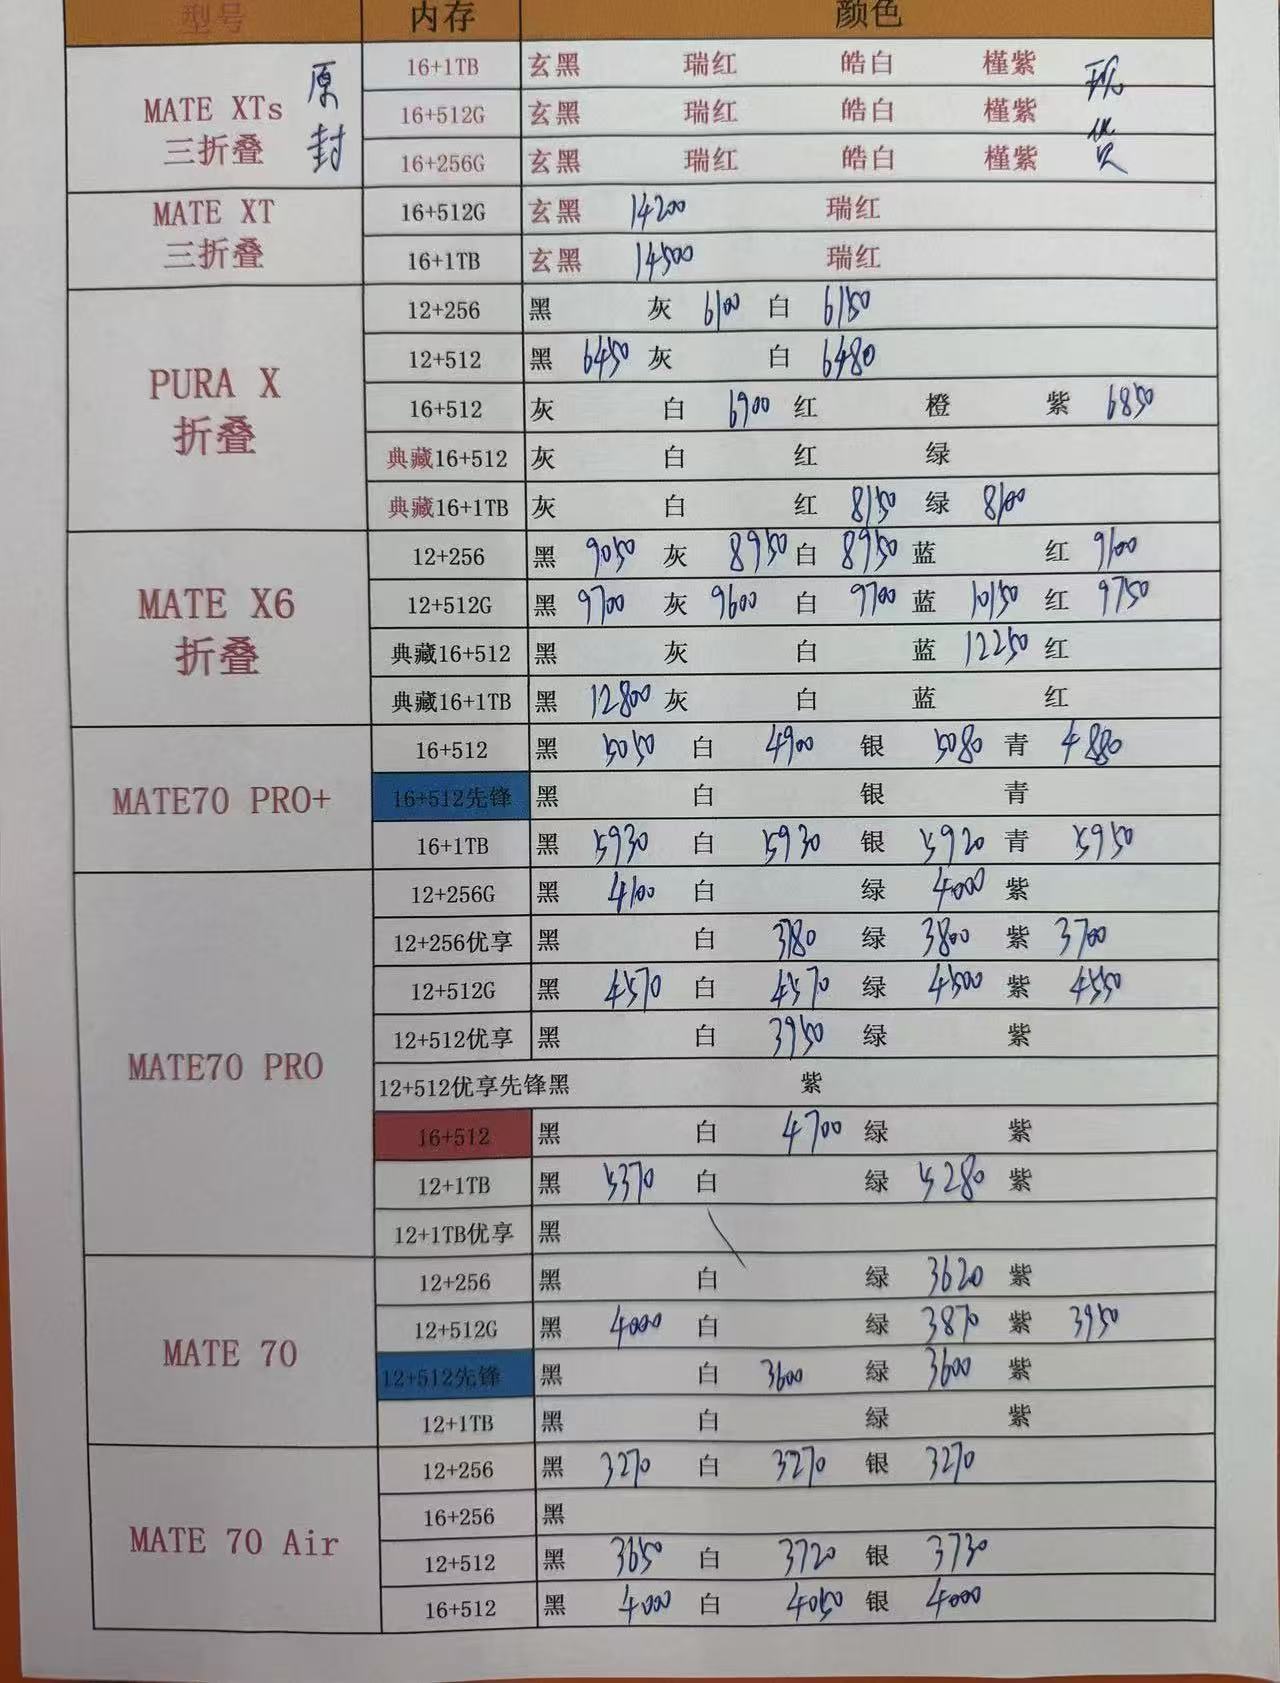 型号 内存 颜色
MATE XTs 三折叠 原封 16+1TB 玄黑 瑞红 皓白 槿紫 现货
16+512G 玄黑 瑞红 皓白 槿紫
16+256G 玄黑 瑞红 皓白 槿紫
MATE XT 三折叠 16+512G 玄黑 14200 瑞红
16+1TB 玄黑 14500 瑞红
PURA X 折叠 12+256 黑 灰 6100 白 6150
12+512 黑 6450 灰 白 6480
16+512 灰 白 6900 红 橙 紫 6850
典藏16+512 灰 白 红 绿
典藏16+1TB 灰 白 红 8150 绿 8100
MATE X6 折叠 12+256 黑 9050 灰 8950 白 8950 蓝 红 9100
12+512G 黑 9700 灰 9600 白 9700 蓝 10150 红 9750
典藏16+512 黑 灰 白 蓝 12250 红
典藏16+1TB 黑 12800 灰 白 蓝 红
MATE70 PRO+ 16+512 黑 5050 白 4900 银 5080 青 4880
16+512先锋 黑 白 银 青
16+1TB 黑 5930 白 5930 银 5920 青 5950
MATE70 PRO 12+256G 黑 4100 白 绿 4000 紫
12+256优享 黑 白 3780 绿 3800 紫 3700
12+512G 黑 4570 白 4570 绿 4500 紫 4550
12+512优享 黑 白 3950 绿 紫
12+512优享先锋黑 紫
16+512 黑 白 4700 绿 紫
12+1TB 黑 5370 白 绿 5280 紫
12+1TB优享 黑
MATE 70 12+256 黑 白 绿 3620 紫
12+512G 黑 4000 白 绿 3870 紫 3950
12+512先锋 黑 白 3600 绿 3600 紫
12+1TB 黑 白 绿 紫
MATE 70 Air 12+256 黑 3270 白 3270 银 3270
16+256 黑
12+512 黑 3650 白 3720 银 3730
16+512 黑 4000 白 4050 银 4000